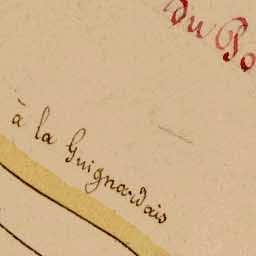 du Po
à la Guignardais